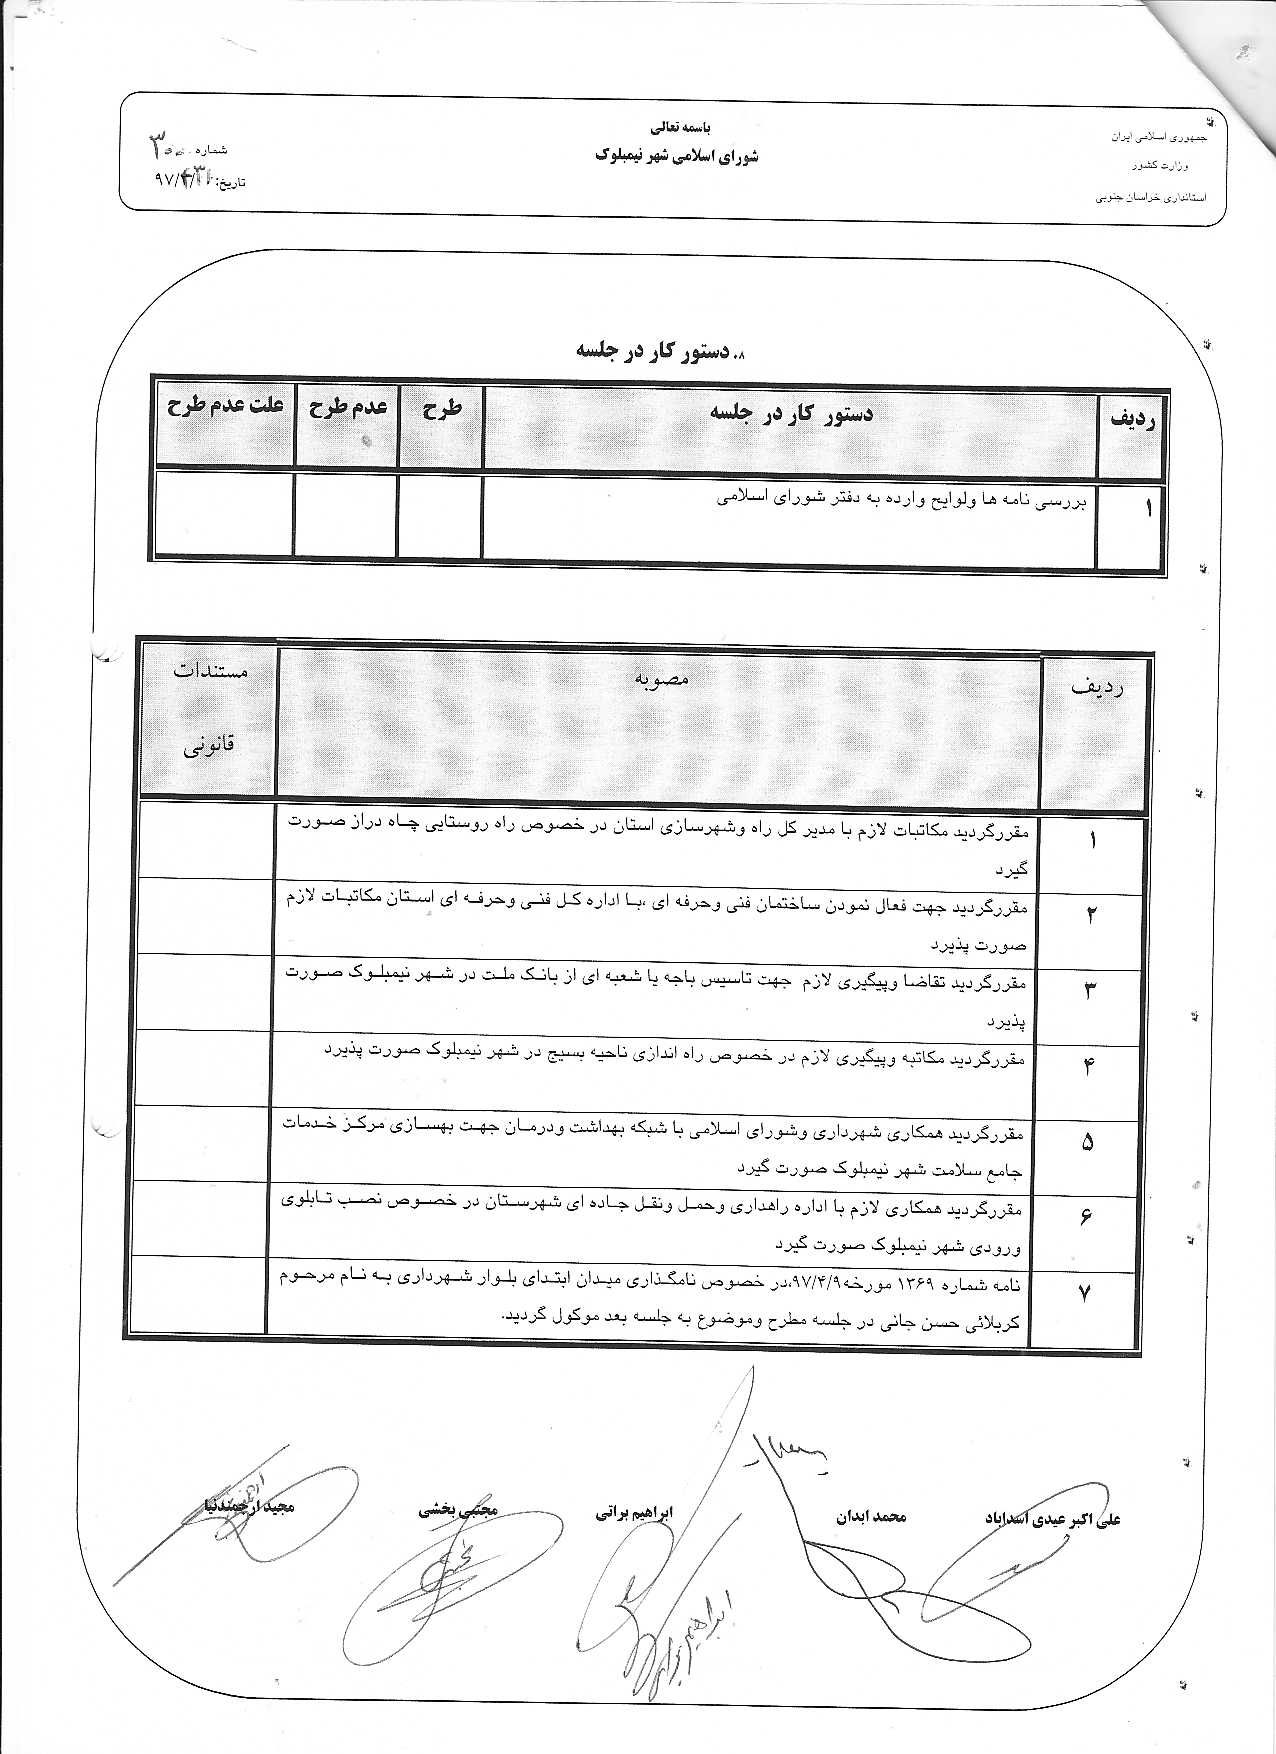 باسمه تعالی
شورای اسلامی شهر نیمبلوک
جمهوری اسلامی ایران
وزارت کشور
استانداری خراسان جنوبی
شماره
تاریخ:
۸. دستور کار در جلسه
ردیف دستور کار در جلسه طرح عدم طرح علت عدم طرح
۱ بررسی نامه ها ولوایح وارده به دفتر شورای اسلامی
ردیف مصوبه مستندات
قانونی
۱ مقررگردید مکاتبات لازم با مدیر کل راه وشهرسازی استان در خصوص راه روستایی چاه دراز صورت
گیرد
۲ مقررگردید جهت فعال نمودن ساختمان فنی وحرفه ای ،با اداره کل فنی وحرفه ای استان مکاتبات لازم
صورت پذیرد
۳ مقررگردید تقاضا وپیگیری لازم جهت تاسیس باجه یا شعبه ای از بانک ملت در شهر نیمبلوک صورت
پذیرد
۴ مقررگردید مکاتبه وپیگیری لازم در خصوص راه اندازی ناحیه بسیج در شهر نیمبلوک صورت پذیرد
۵ مقررگردید همکاری شهرداری وشورای اسلامی با شبکه بهداشت ودرمان جهت بهسازی مرکز خدمات
جامع سلامت شهر نیمبلوک صورت گیرد
۶ مقررگردید همکاری لازم با اداره راهداری وحمل ونقل جاده ای شهرستان در خصوص نصب تابلوی
ورودی شهر نیمبلوک صورت گیرد
۷ نامه شماره ۱۳۶۹ مورخه۹۷/۴/۹،در خصوص نامگذاری میدان ابتدای بلوار شهرداری به نام مرحوم
کربلائی حسن جانی در جلسه مطرح وموضوع به جلسه بعد موکول گردید.
علی اکبر عیدی اسدآباد محمد ابدان ابراهیم براتی مجتبی بخشی مجید ارجمندنیا
ابراهیم براتی